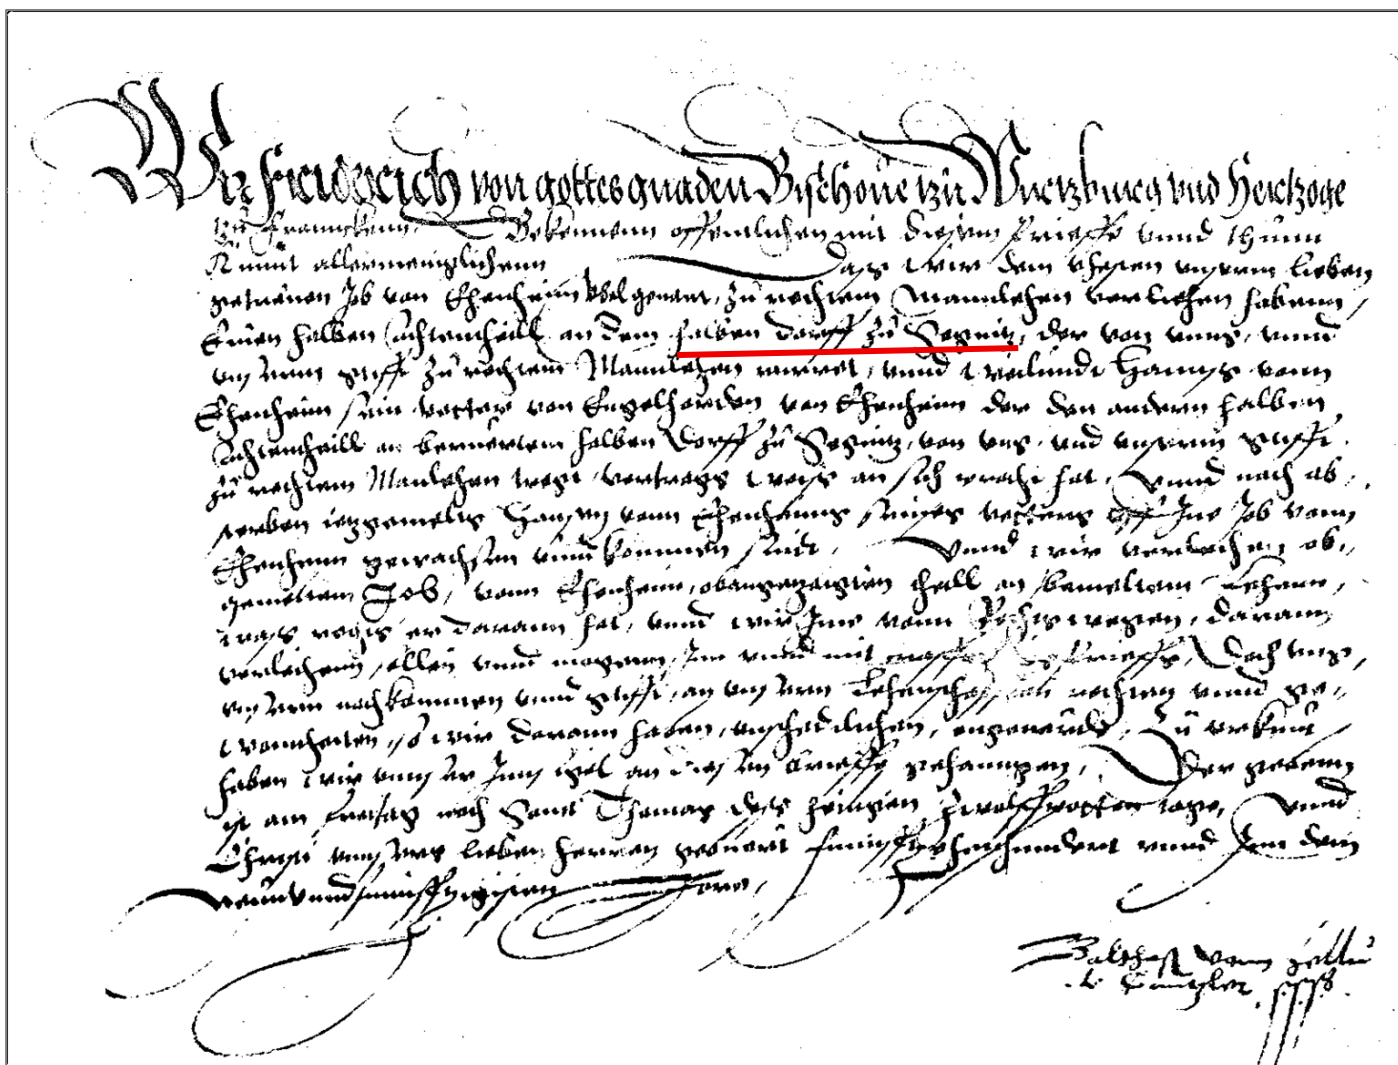 Wir Friederich von gottes gnaden Bischoue tzu Wurtzburg vnd Hertzoge
zu Franncken, Bekennenn offentlichen mit diesem brieffe vnnd thunn
kunnt allermenniglichenn Dass wir dem vhesten vnserm lieben
getreuen Job von Ehenheim zu rechtem Mannlehen verliehen habenn,
Einen halben Achtentheill an dem halben dorff zu Segnitz, der von vnns, vnnd
vnserm stifft zu rechtem Mannlehen ruret, vnnd weilundt Hanns vonn
Ehenheim sein vetter von Engelharden von Ehenheim der den anderen halben
Achtentheill an beruertem halben Dorff zu Segnitz, von vns, vnd vnserm stifft
zu rechtem Manlehen tregt, vertrags weyss an sich pracht hat, Vnnd nach ab,,
sterben ietzgemelts Hansen vonn Ehenheims seines vetters vff Ine Job vonn
Ehenheim gewachsen vnnd kommen sindt, Vnnd wir verleihen ob,,
gemeltem Job, vonn Ehenheim, obangezaigten theill an bemeltem Lehenn,
wass rechts er darann hat, vnnd wir Ime vonn Rechts wegen, darann
verleihenn sollen vnnd mogenn, Inn vnnd mit craft dis brieffs, Doch vns,
vnsern nachkommen vnnd stifft, an vnsern Lehenschafften rechten vnnd ge,,
wonnheiten, so wir darann haben, vnschedlichen, ongeuerde, Zu vrkunt
haben wir vnnser Innsigel an diesen brieffe gehanngen, Der gebenn
ist am freitag nach Sannt Thomas dess heiligen zwelffpotten tage, Vnnd
Christi vnnsers lieben herren geburt funffzehenhundert vnnd Inn dem
Neunvnndfunffzigisten Jare,
Balthasar vonn
Cantzler